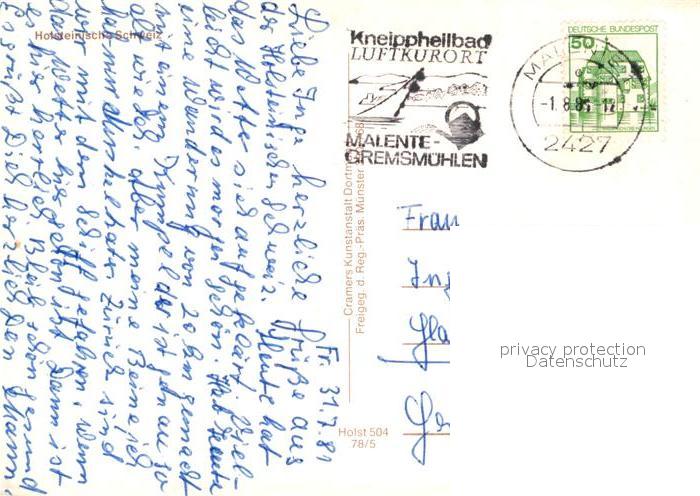 Holsteinische Schweiz
Fr. 31.7.81
Liebe Inge herzliche Grüße aus
der Holsteinischen Schweiz. Heute hat
das Wetter sich aufgeklärt. Viel-
leicht wird es morgen schön. Hab heute
eine Wanderung von 20 km gemacht
mit einem
also wieder. Aber meine Beine
zurück sind
wir mit dem Schiff gefahren. Wenn
das Wetter hier schön ist Dann ist
es hier herrlich Bleib schön gesund
Es grüßt Dich herzlich Dein
Cramers Kunstanstalt Dortmund
Freigeg. d. Reg.-Präs. Münster
Holst 504
78/5
Kneippheilbad
LUFTKURORT
MALENTE-
GREMSMÜHLEN
MALENTE
-1.8.81-12
2427
DEUTSCHE BUNDESPOST
50
Frau
Ing
privacy protection
Datenschutz